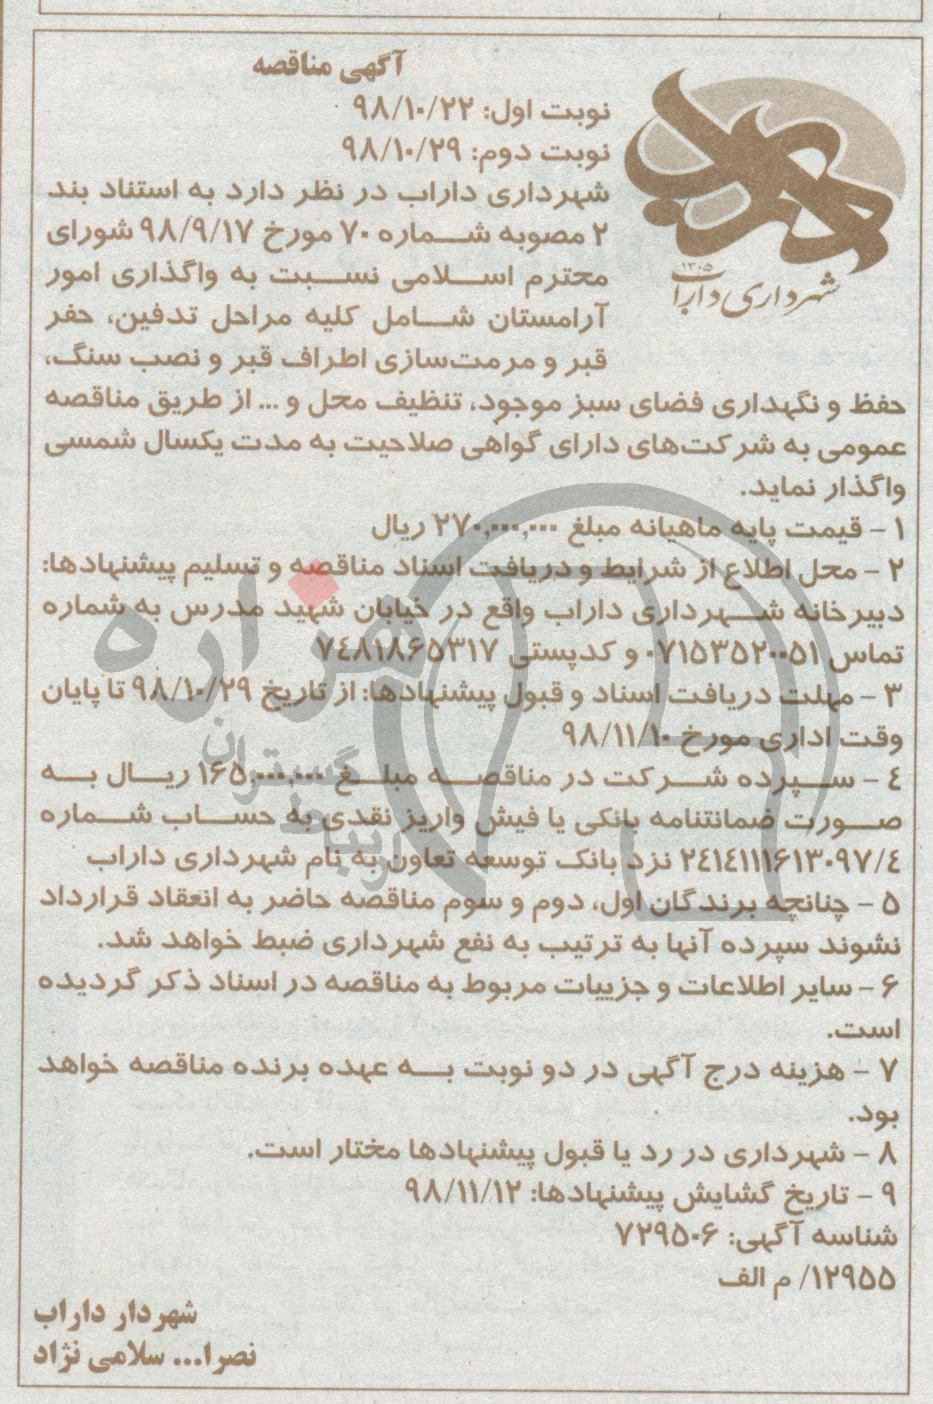 آگهی مناقصه
نوبت اول: ۹۸/۱۰/۲۲
نوبت دوم: ۹۸/۱۰/۲۹
شهرداری داراب در نظر دارد به استناد بند
۲ مصوبه شماره ۷۰ مورخ ۹۸/۹/۱۷ شورای
محترم اسلامی نسبت به واگذاری امور
آرامستان شامل کلیه مراحل تدفین، حفر
قبر و مرمت‌سازی اطراف قبر و نصب سنگ،
حفظ و نگهداری فضای سبز موجود، تنظیف محل و ... از طریق مناقصه
عمومی به شرکت‌های دارای گواهی صلاحیت به مدت یکسال شمسی
واگذار نماید.
۱ - قیمت پایه ماهیانه مبلغ ۲۷۰,۰۰۰,۰۰۰ ریال
۲ - محل اطلاع از شرایط و دریافت اسناد مناقصه و تسلیم پیشنهادها:
دبیرخانه شهرداری داراب واقع در خیابان شهید مدرس به شماره
تماس ۰۷۱۵۳۵۲۰۰۵۱ و کدپستی ۷۴۸۱۸۶۵۳۱۷
۳ - مهلت دریافت اسناد و قبول پیشنهادها: از تاریخ ۹۸/۱۰/۲۹ تا پایان
وقت اداری مورخ ۹۸/۱۱/۱۰
۴ - سپرده شرکت در مناقصه مبلغ ۱۶۵,۰۰۰,۰۰۰ ریال به
صورت ضمانتنامه بانکی یا فیش واریز نقدی به حساب شماره
۲۴۱۴۱۱۱۶۱۳۰۹۷/۴ نزد بانک توسعه تعاون به نام شهرداری داراب
۵ - چنانچه برندگان اول، دوم و سوم مناقصه حاضر به انعقاد قرارداد
نشوند سپرده آنها به ترتیب به نفع شهرداری ضبط خواهد شد.
۶ - سایر اطلاعات و جزییات مربوط به مناقصه در اسناد ذکر گردیده
است.
۷ - هزینه درج آگهی در دو نوبت به عهده برنده مناقصه خواهد
بود.
۸ - شهرداری در رد یا قبول پیشنهادها مختار است.
۹ - تاریخ گشایش پیشنهادها: ۹۸/۱۱/۱۲
شناسه آگهی: ۷۲۹۵۰۶
۱۲۹۵۵/ م الف
شهردار داراب
نصرا... سلامی نژاد
۱۳۰۵
شهرداری داراب
هزاره
گستران